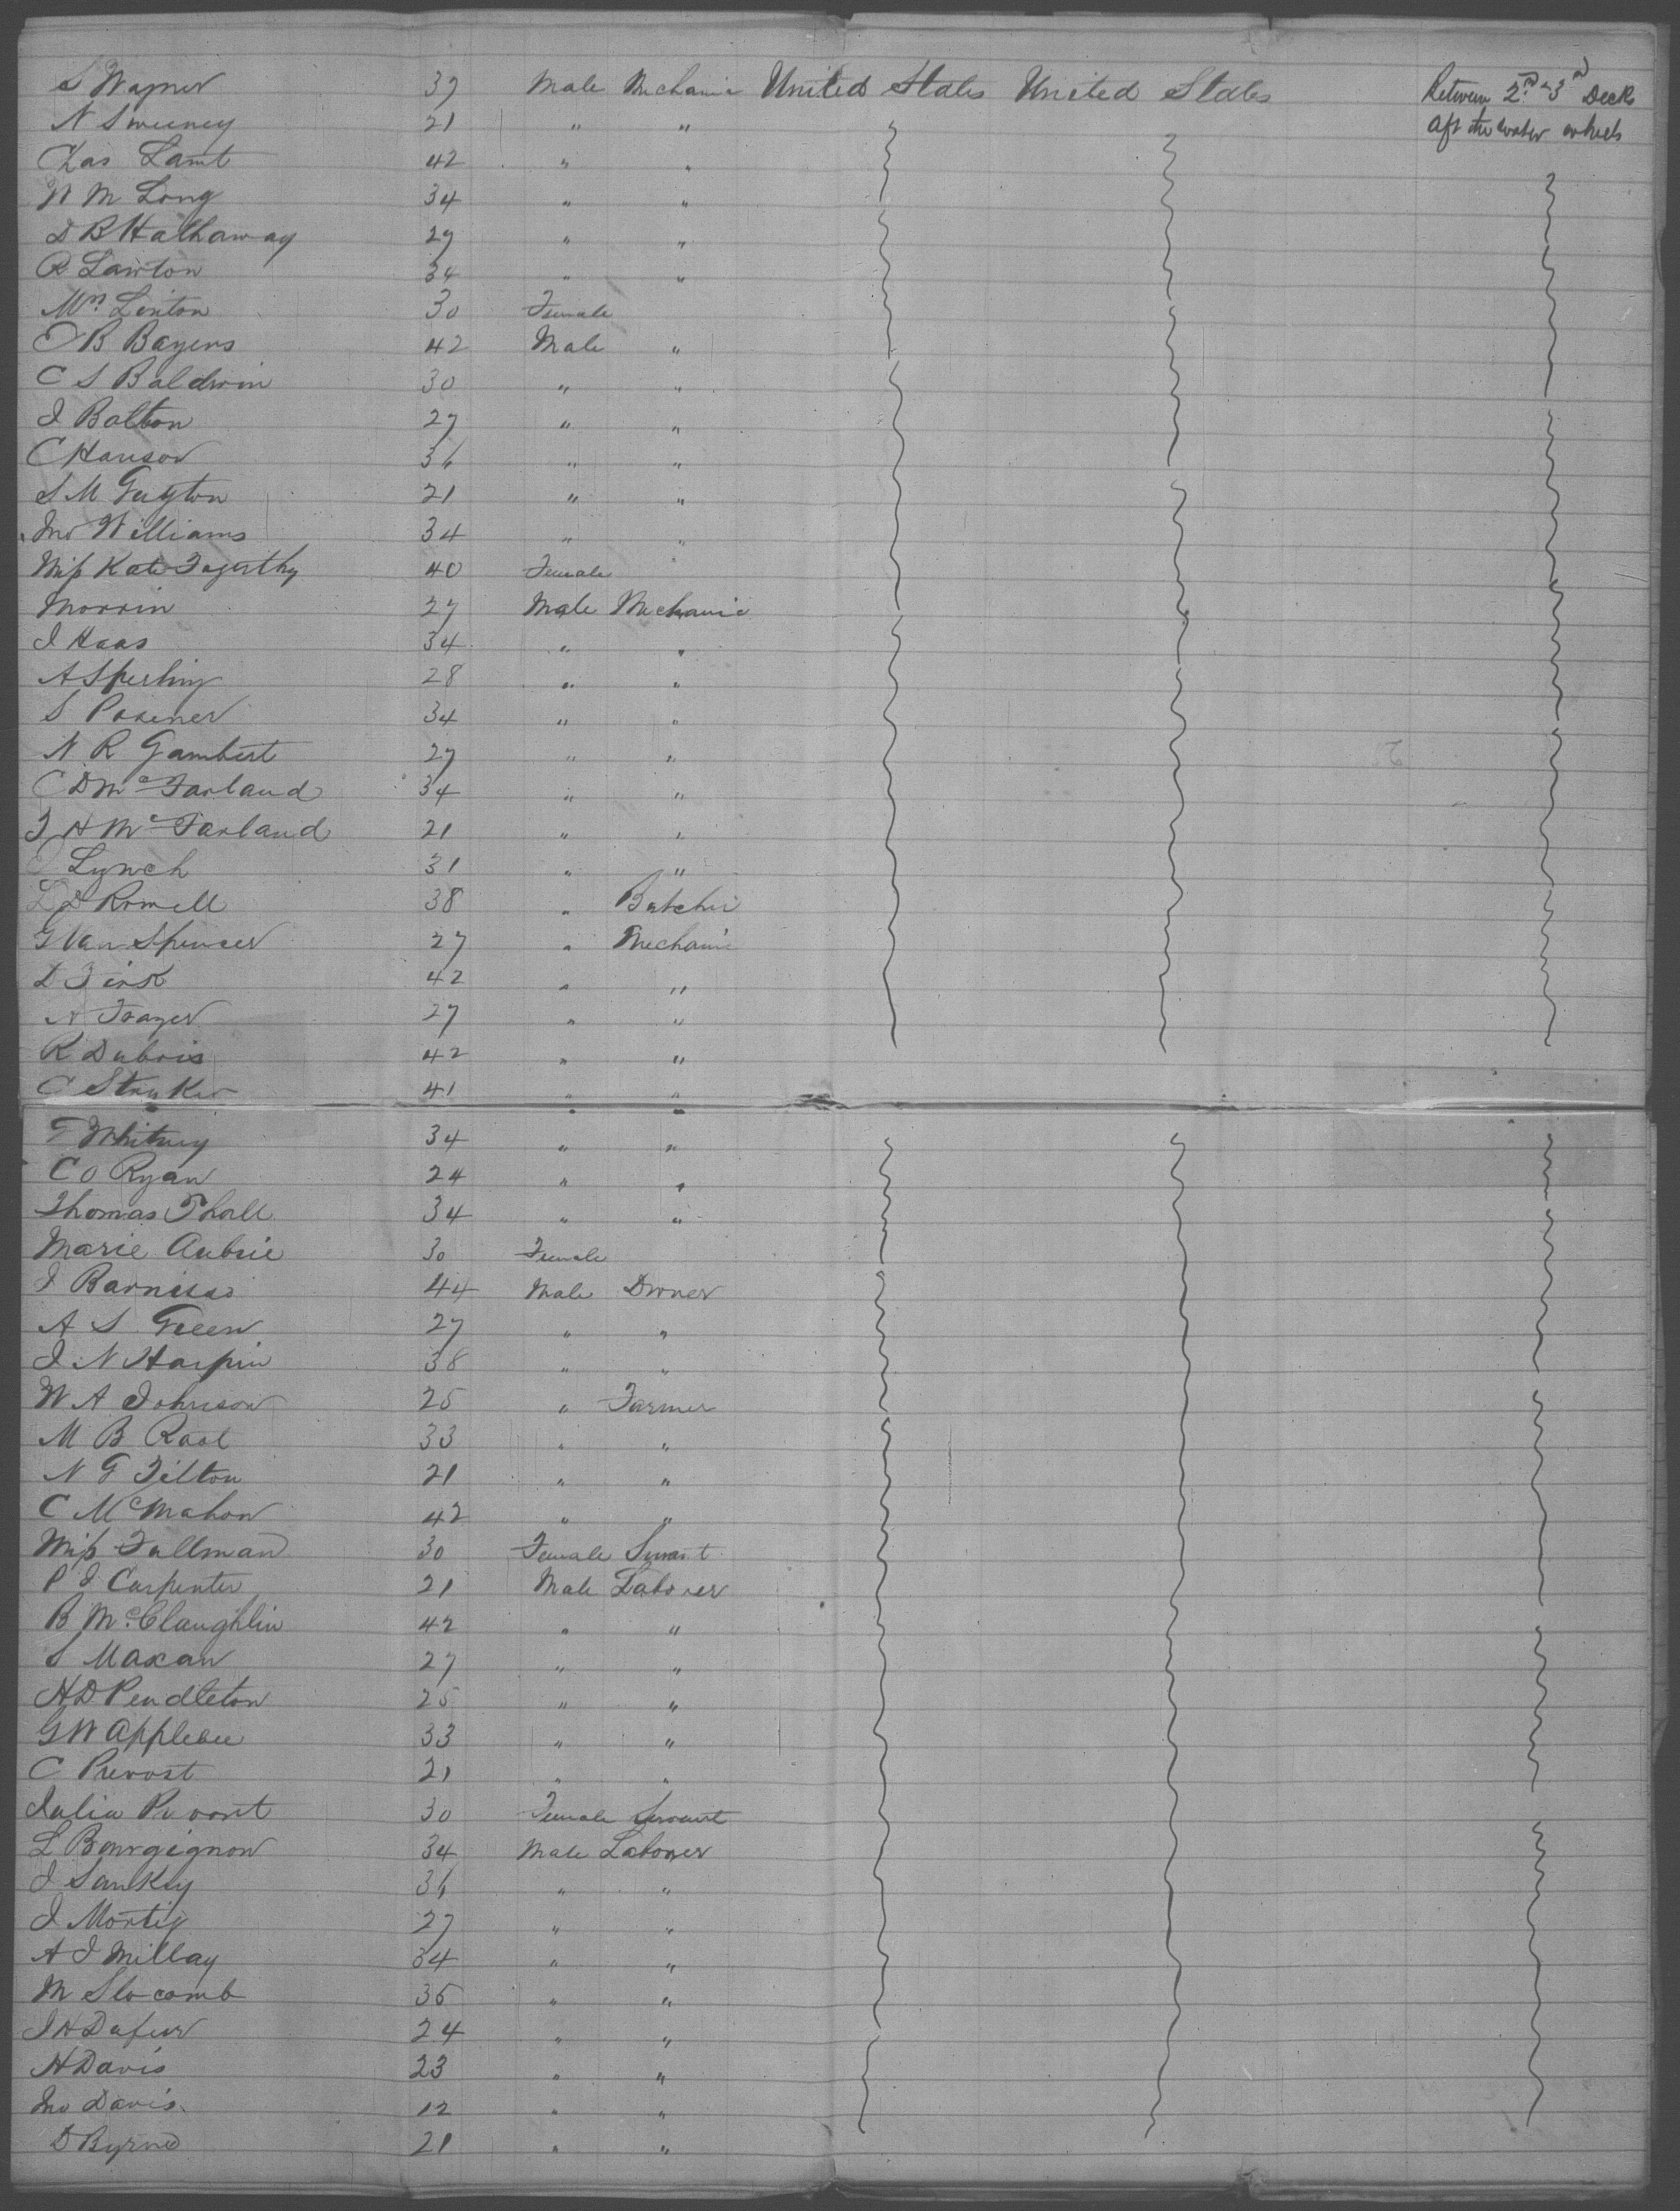 S Wagner 37 Male Mechanic United States United States Between 2nd & 3d Deck
N Sweeney 21 " " aft the water wheels
Chas Lamt 42 " "
W M Long 34 " "
D B Hathaway 27 " "
R Lawton 34 " "
Mrs Linton 30 Female
B Bayens 42 Male "
C S Baldwin 30 " "
J Bolton 27 " "
C Hanson 36 " "
S M Guyton 21 " "
Jno Williams 34 " "
Miss Kate Fogerthy 40 Female
Morrin 27 Male Mechanic
J Haas 34 " "
A Sperling 28 " "
S Posener 34 " "
N. R Gambert 27 " "
C D Mc Farland 34 " "
T H Mc Farland 21 " "
Lynch 31 " "
L D Romell 38 " Butcher
G Van Spencer 27 " Mechanic
D Fisk 42 " "
N Frazer 27 " "
R Dubois 42 " "
C Stryker 41 " "
T Whitney 34 " "
C O Ryan 24 " "
Thomas Thall 34 " "
Marie Aubrie 30 Female
J Barnisso 44 Male Drover
A S Green 27 " "
J N Harpin 38 " "
W A Johnson 25 " Farmer
M B Rast 33 " "
N G Tilton 21 " "
C McMahon 42 " "
Miss Tallman 30 Female Servant
P J Carpenter 21 Male Laborer
B Mc Claughlin 42 " "
S Maxan 27 " "
H D Pendleton 25 " "
G W Applebee 33 " "
C Prevost 21 " "
Julia Prevost 30 Female Servant
L Bourgignon 34 Male Laborer
J Sankey 36 " "
J Mortig 27 " "
A J Millay 34 " "
M Slocomb 35 " "
J H Dafeur 24 " "
H Davis 23 " "
Jno Davis 12 " "
D Byrne 21 " "